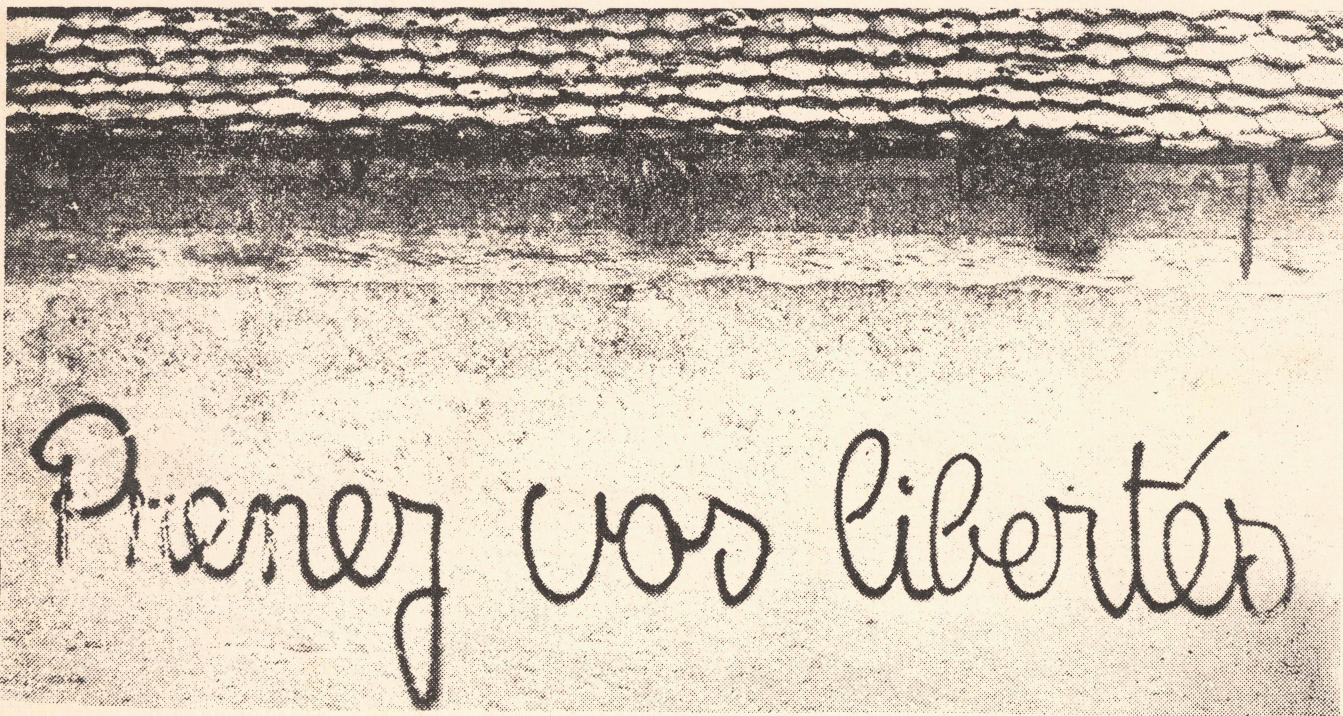 Prenez vos libertés